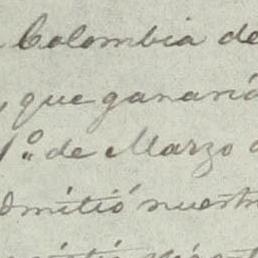 Colombia de
que ganaría
1º de Marzo
admitió nuestr